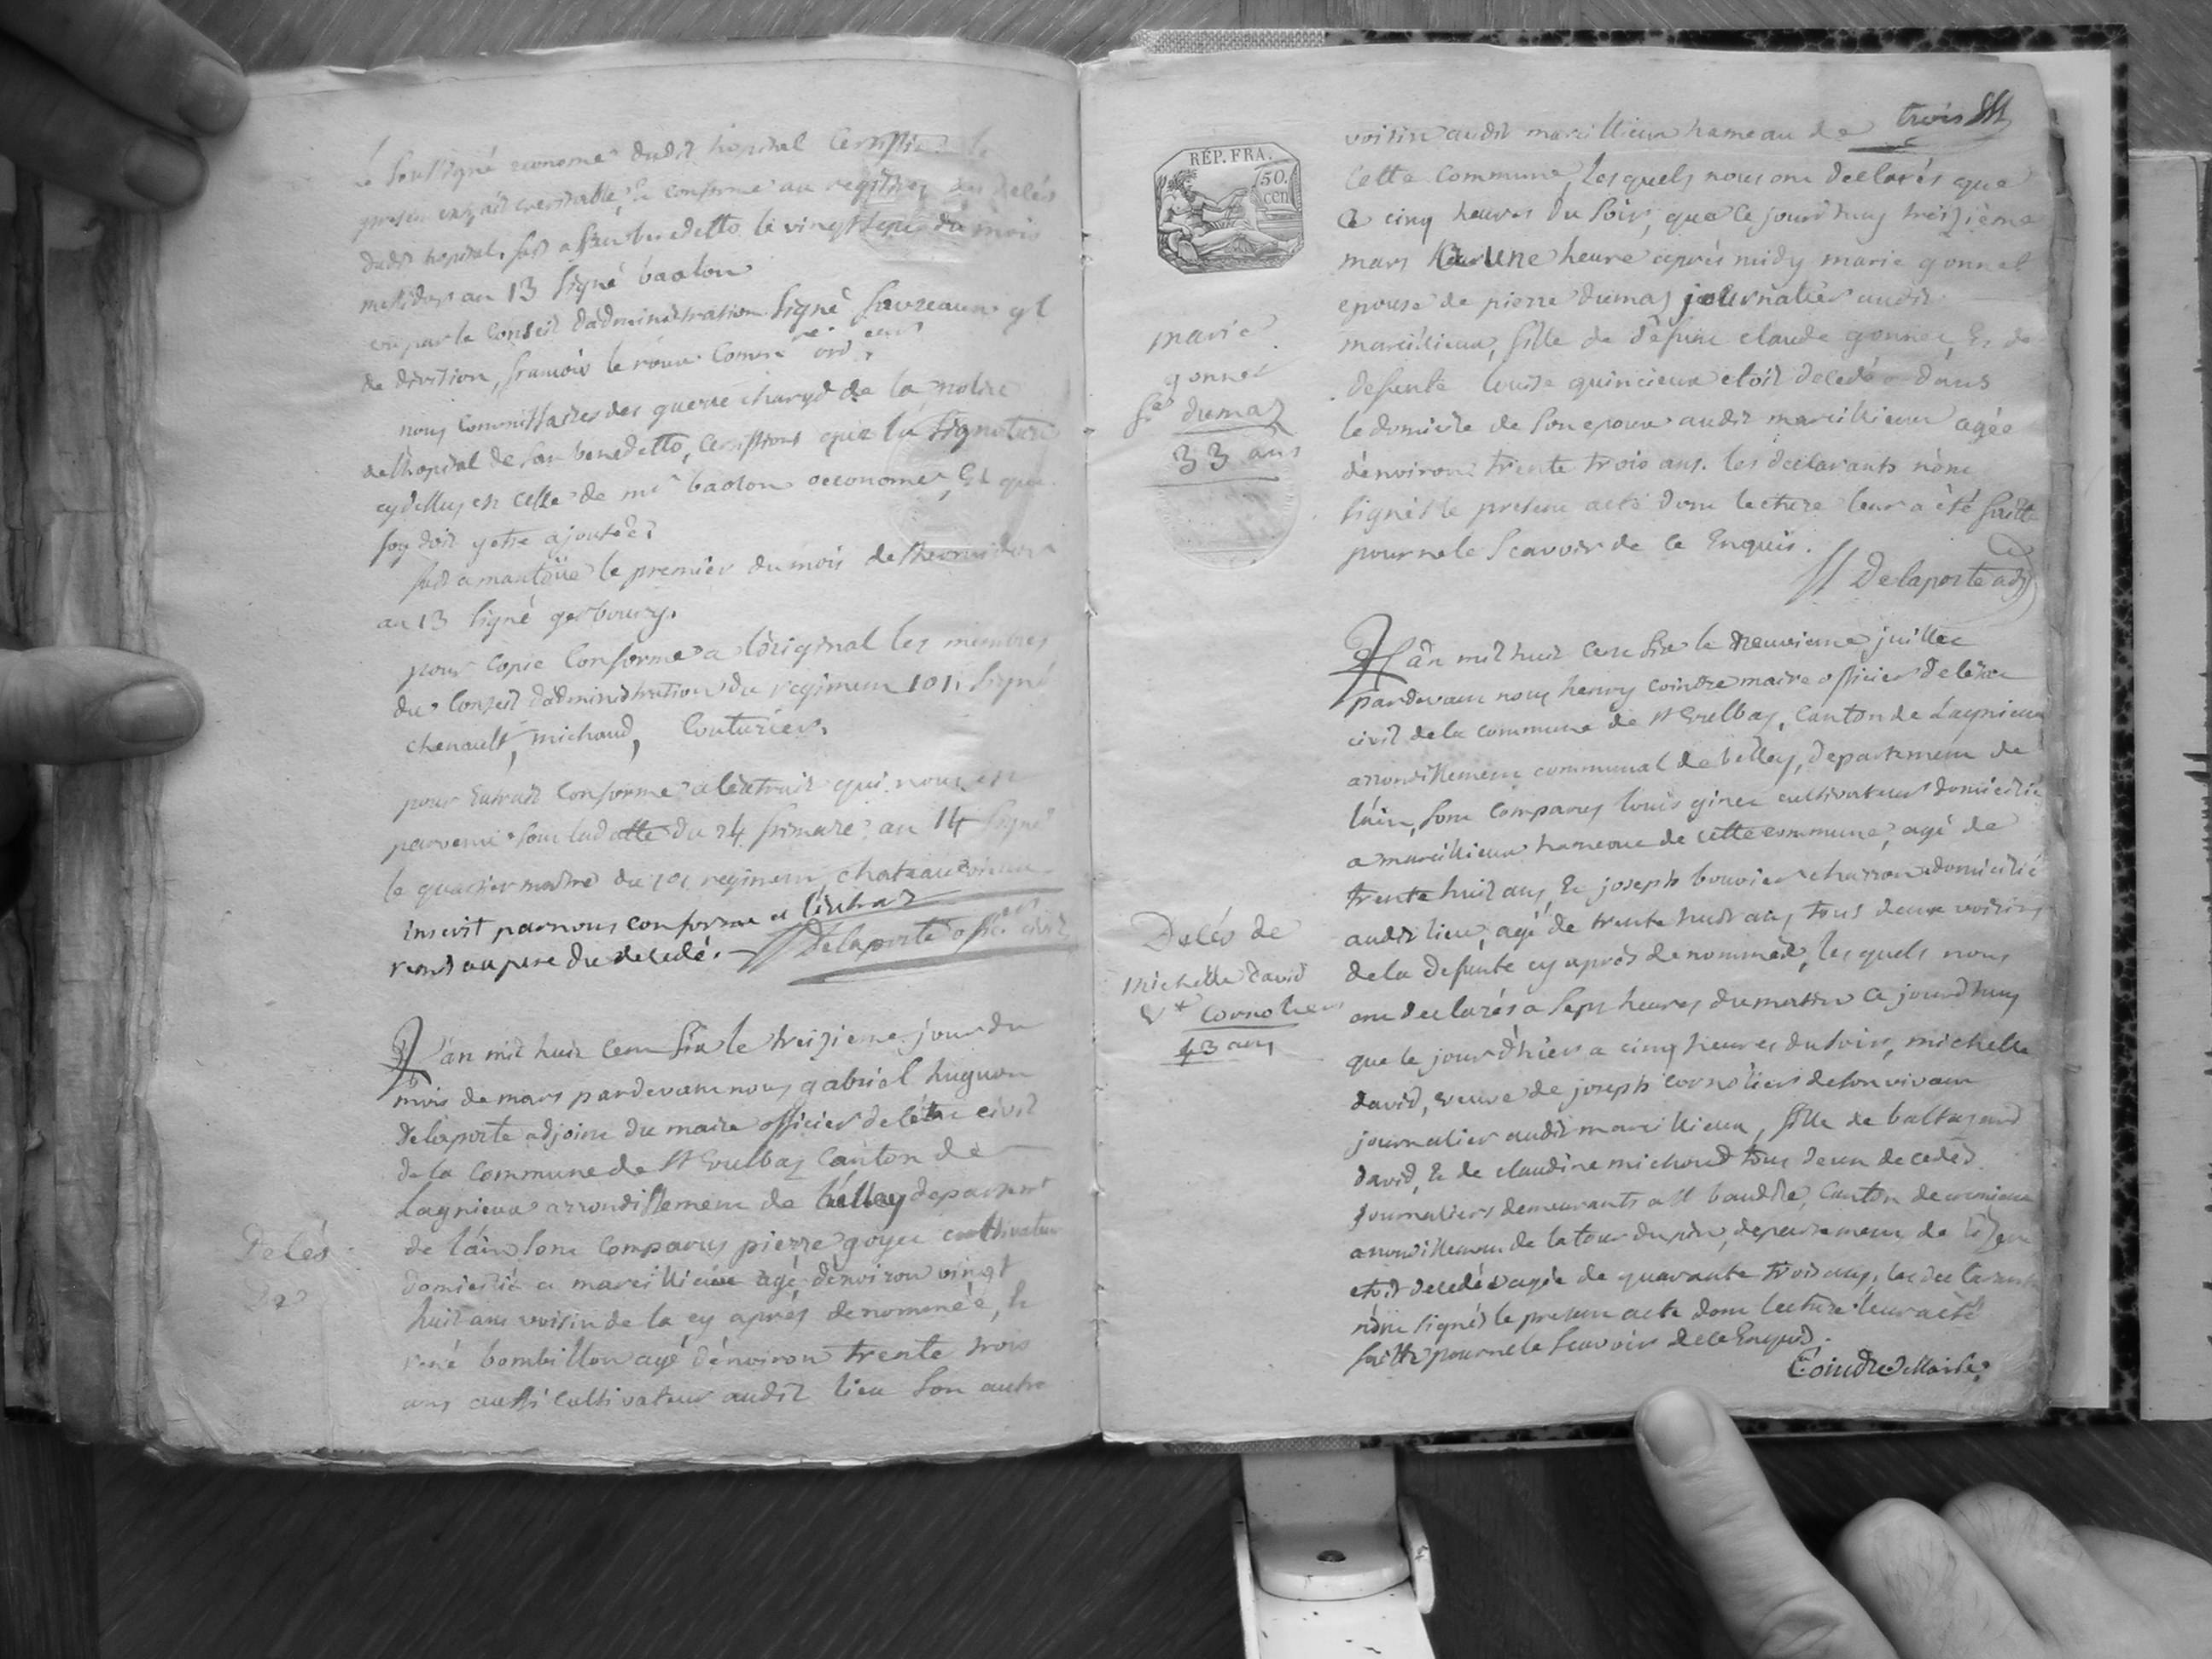 le soussigné econome dudit hopital certifie le
present extrait veritable, et conforme au registres des delés
dudit hopital. fait a san benedetto le vingt sept du mois
messidor an 13 signé baolon
vu par le conseil dadministration signé
de division, francois le roux
nous commissaires des guerre chargé de la police
de lhopital de san benedetto, certifions que la signature
cy dessus est celle de mr baolon oeconome, Et que
foy doit y etre ajoutée.
fait a mantoüe le premier du mois de thermidor
an 13 signé gerboury.
pour copie conforme a l'original les membres
du conseil dadministration du regiment 101. signé
chenault, michaud, Couturier.
pour Extrait conforme a lextrait qui nous est
parvenu sous la datte du 24 frimaire an 14 signé
le quartier maitre du 101 regiment
inscrit par nous conforme a l'extrait
remis au pere du decedé. Delaporte offi. civil
Delés
de
L'an mil huit cent six le treizieme jour du
mois de mars pardevant nous gabriel huguon
Delaporte adjoint du maire officier de létat civil
de la commune de St Vulbas Canton de
Lagnieux arrondissement de belley departemt
de láin sont comparus pierre goyet cultivateur
domicilié a marcillieux agé d'environ vingt
huit ans voisin de la cy aprés denommée, et
réné bombillon agé d'environ trente trois
ans aussi cultivateur audit lieu son autre
trois
RÉP. FRA.
50. cen
marie
gonnet
fe dumas
33 ans
voisin audit marcillieux hameau de
cette commune, lesquels nous ont declarés que
a cinq heures du soir, que ce jourdhuy treizième
mars a une heure aprés midy marie gonnet
epouse de pierre dumas journalier audit
marcillieux, fille de défunt claude gonnet, et de
defunte louise quincieux etoit decedée dans
le domicile de son epoux audit marcillieux agée
d'environ trente trois ans. les déclarants n'ont
signés le present acte dont lecture leur a été faitte
pour ne le scavoir de ce Enquis.
Delaporte adj
Delés de
michelle david
Ve Cornolier
43 ans
L'an mil huit cent six le neuvieme juillet
pardevant nous henry cointre maire officier de létat
civil de la commune de St Vulbas, canton de Lagnieux
arrondissement communal de belley, departement de
láin, sont comparus louis giret cultivateur domicilié
a marcillieux hameau de cette commune, agé de
trente huit ans, et joseph bouvier charron domicilié
audit lieu, agé de trente huit ans tous deux voisins
de la defunte cy aprés denommée, lesquels nous
ont declarés a sept heures du matin ce jourdhuy
que le jour d'hier a cinq heures du soir, michelle
david, veuve de joseph cornolier de son vivant
journalier audit marcillieux, fille de baltazard
david, et de claudine michoud tous deux decedés
journaliers demeurants a St baudile, Canton de cremieux
arrondissement de la tour du pin, departement de lizere
etoit decedée agée de quarante trois ans, les declarants
n'ont signés le present acte dont lecture leur a été
faitte pour ne le scavoir de ce Enquis.
Coindre Maire